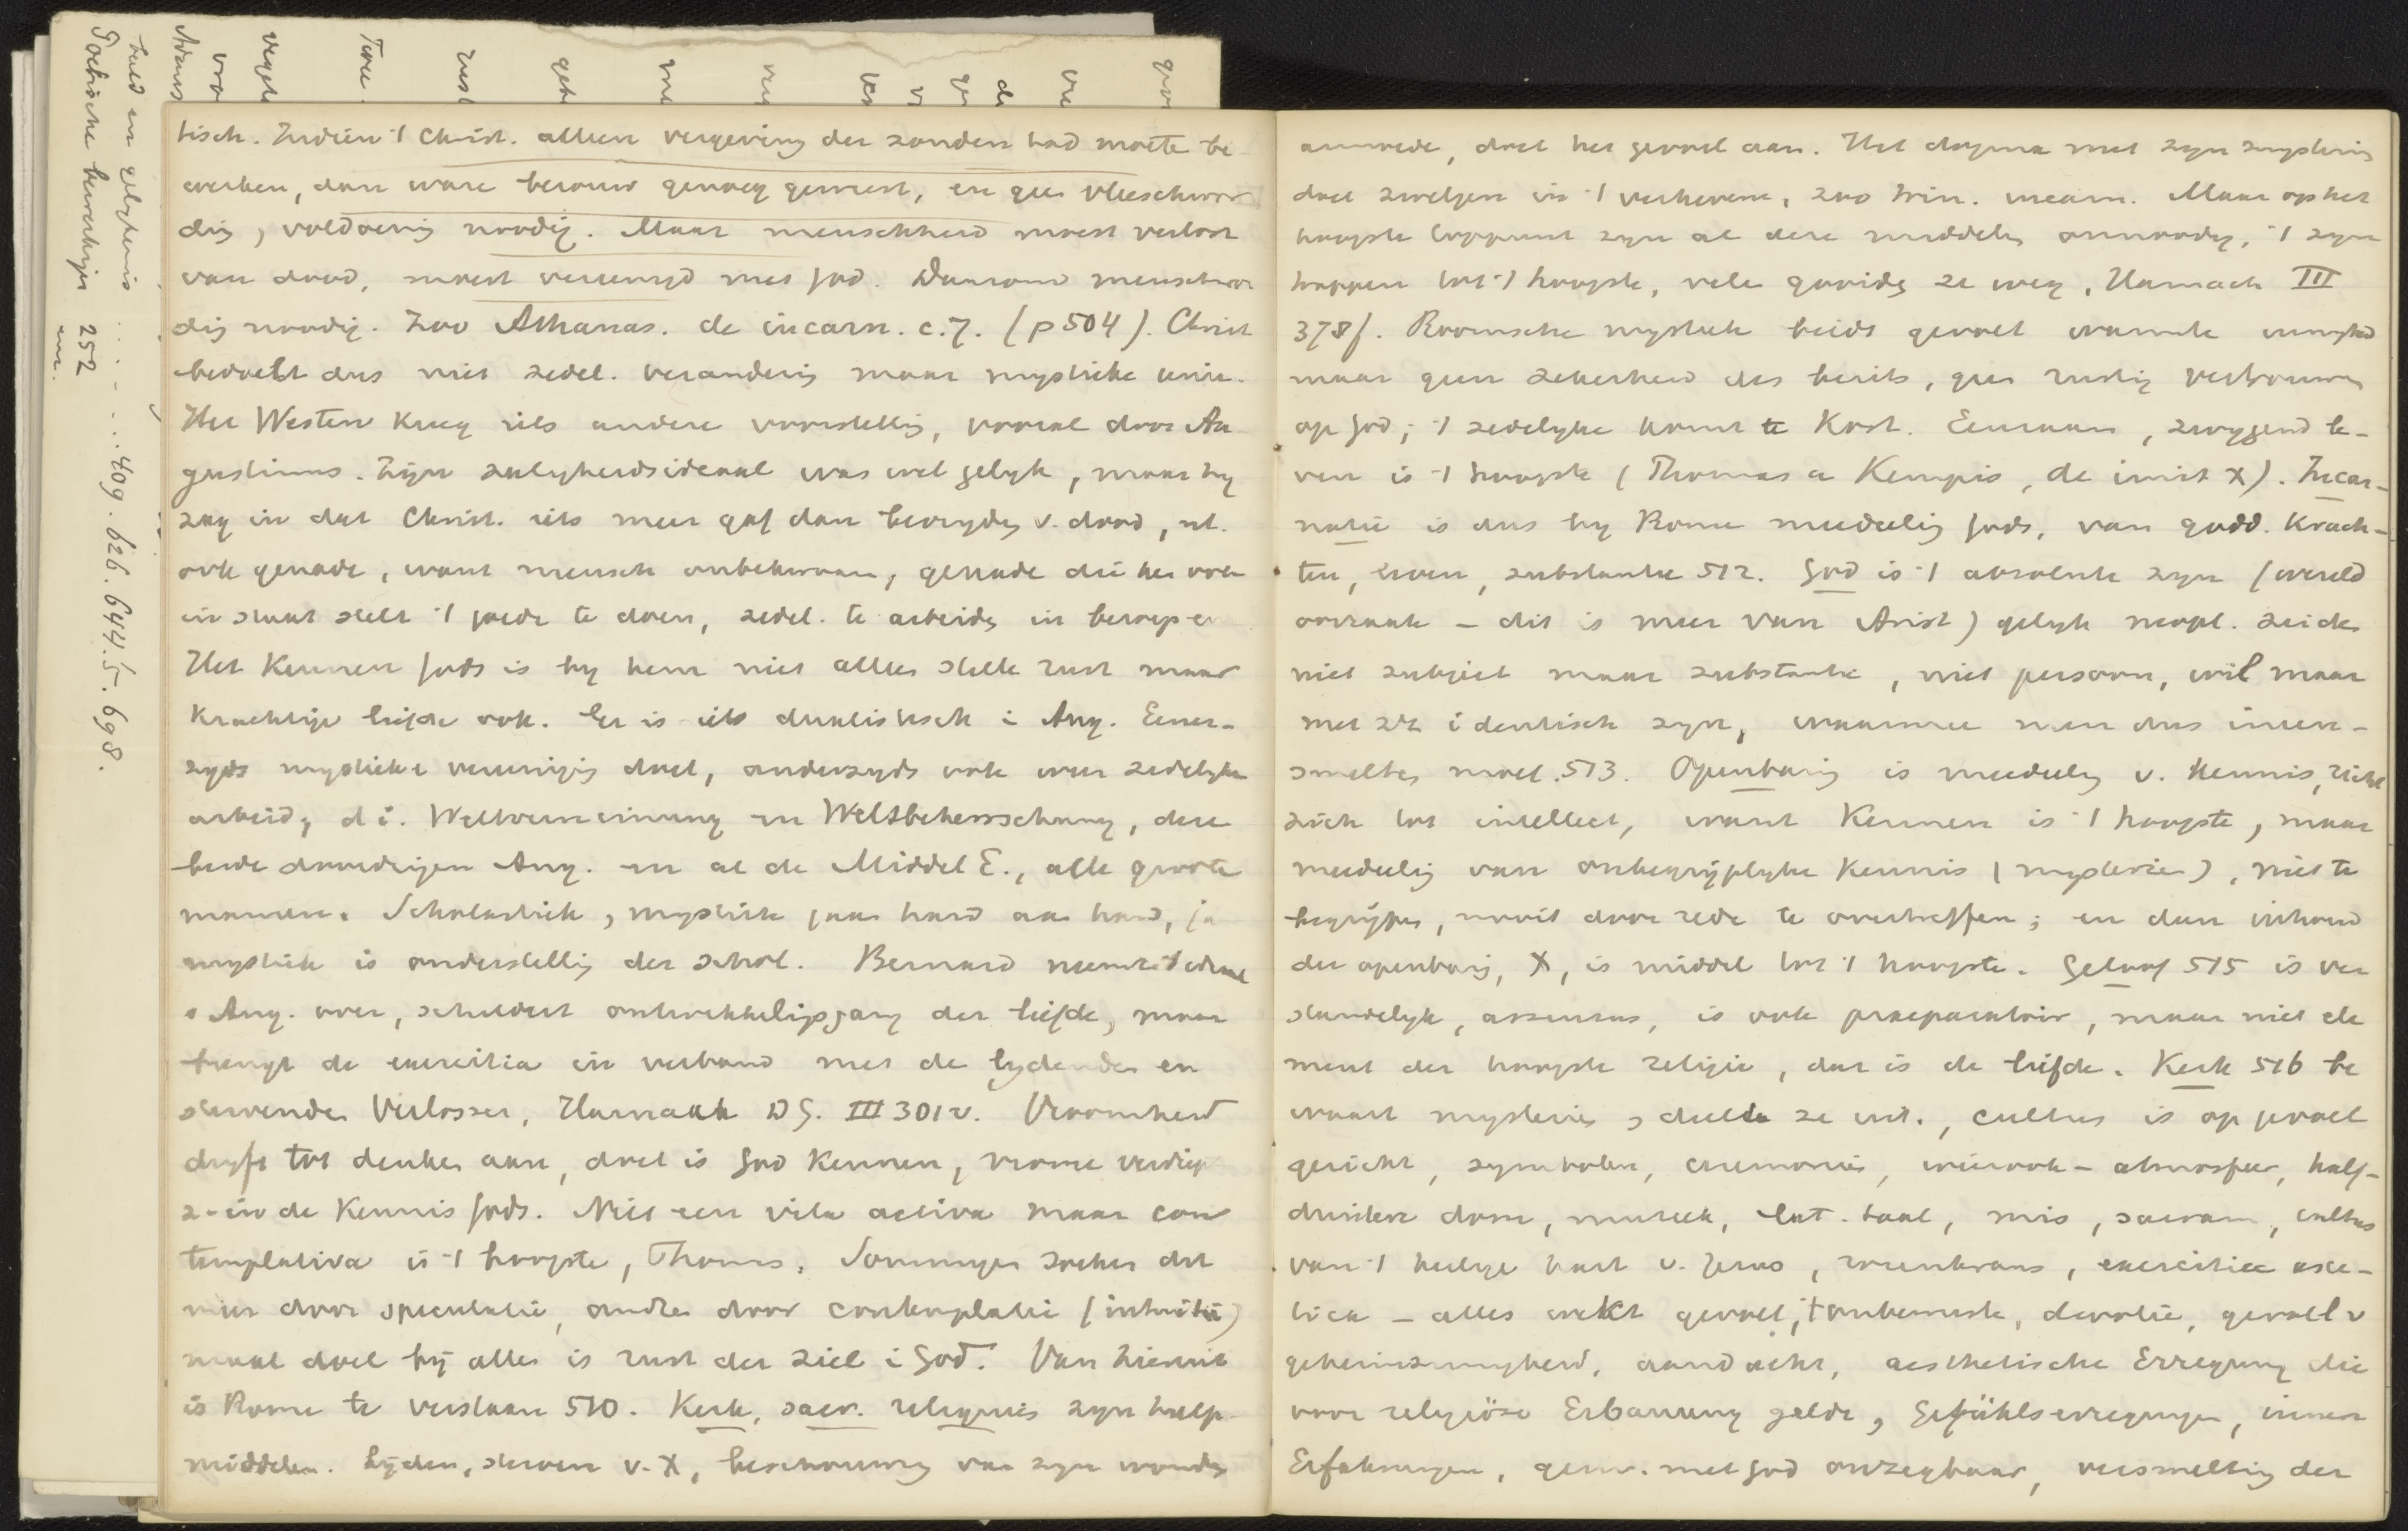 tisch. Indien 't Christ. alleen vergeving der zonden had moete be-
werken, dan ware berouw genoeg geweest, en geen vleeschwor
ding, voldoening noodig. Maar menschheid moest verlost
van dood, moest vereenigd met God. Daarom menschwor
ding noodig. Zoo Athanas. de incarn. c. 7. (p 504). Christ
bedoelt dus niet zedel. verandering maar mystieke unie.
Het Westen kreeg iets andere voorstelling, vooral door Au
gustinus. Zijn zaligheidsideaal was wel gelyk, maar hy
zag in dat Christ. iets meer gaf dan bevryding v. dood, nl.
ook genade, want mensch onbekwaam, genade die hem ook
in staat stelt 't goede te doen, zedel. te arbeiden in beroep en
Het Kennen Gods is by hem niet alleen stille rust maar
krachtige liefde ook. Er is iets dualistisch i Aug. Eener-
zyds mystieke vereeniging doel, anderzyds ook weer zedelyke
arbeid, d i. Weltverneinung en Weltbeherrschung, deze
beide Aug. en al de Middel E., alle groote
mannen. Scholastiek, mystiek gaan hand aan hand, ja
mystiek is onderstelling der schol. Bernard neemt ideaal
v Aug. over, schildert ontwikkelingsgang der liefde, maar
brengt de exercitia in verband met de lydenden en
stervenden Verlosser, Harnack DG. III 301 v. Vroomheid
dryft tot denken aan, doel is God kennen, vrome verdiep
z - in de Kennis Gods. Niet een vita activa maar con
templativa is 't hoogste, Thomas. Sommigen zoeken dit
meer door speculatie, andre door contemplatie (intuitie)
maar doel bij allen is rust der ziel i God. Van hieruit
is Rome te verstaan 510. Kerk, sacr. religieus zyn hulp
middelen. Lijden, sterven v. X, beschouwing van zyn wonden
annrede, doet het gevoel aan. Het dogma met zyn mysterien
doet zwelgen in 't verhevene, zoo trin. incarn. Maar op het
hoogste toppunt zyn al deze middelen onnoodig, 't zyn
trappen tot 't hoogste, velen gooiden ze weg, Harnack III
378f. Roomsche mystiek biedt gevoel warmte innigheid
maar geen zekerheid des heils, geen rustig vertrouwen
op God; 't zedelyke komt te kort. Eenzaam, zwygend le-
ven is 't hoogste (Thomas a Kempis, de imit X). Incar-
natie is dus by Rome meedeeling Gods, van godd. krach-
ten, leven, substantie 512. God is 't absolute zyn (wereld
oorzaak - dit is meer van Arist) gelyk neopl. zeiden
niet subject maar substantie, niet persoon, wil maar
met zich identisch zyn, waarmee men dus ineen-
smelten moet. 513. Openbaring is meedeeling v. kennis, richt
zich tot intellect, want kennen is 't hoogste, maar
meedeeling van onbegrijplyke kennis (mysterien), niet te
begrijpen, nooit door rede te overtreffen; en dan inhoud
der openbaring, X, is middel tot 't hoogste. Geloof 515 is ver
standelyk, assensus, is ook praeparatoir, maar niet ele
ment der hoogste religie, dat is de liefde. Kerk 516 be
waart mysterien, deelt ze uit., cultus is op gevoel
gericht, symbolen, ceremonien, wierook - atmosfeer, half-
duistere dom, muziek, Lat. taal, mis, sacram, cultus
van 't heilige hart v. Jezus, rozenkrans, exercitien asce-
tiek - alles wekt gevoel, 't onbewuste, devotie, gevoel v
geheimzinnigheid, aandacht, aesthetische Erregung die
voor religiöse Erbauung gelde, Gefühlserregungen, innere
Erfahrungen, gem. met God onzegbaar, versmelting der
beeld en gelykenis .... 409. 626. 644. 5. 698.
Poetische 252